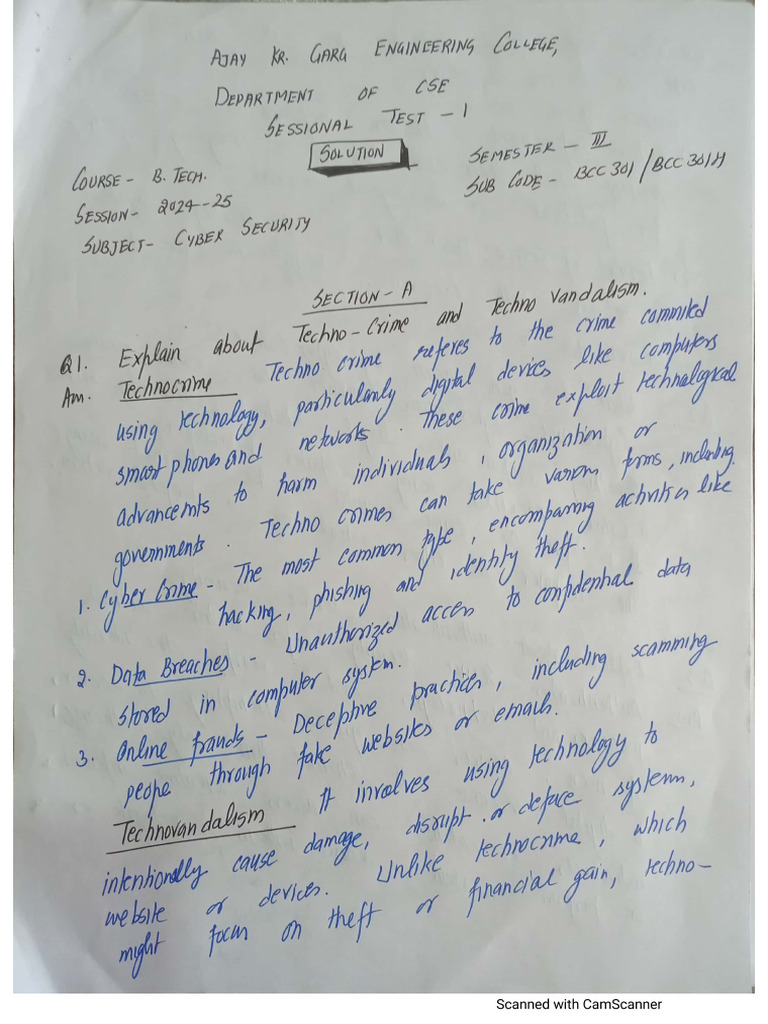 AJAY KR. GARG ENGINEERING COLLEGE,
DEPARTMENT OF CSE
SESSIONAL TEST - 1
SOLUTION
COURSE - B. TECH.
SEMESTER - III
SESSION - 2024-25
SUB CODE - BCC 301 / BCC 301H
SUBJECT - CYBER SECURITY
SECTION - A
Q1. Explain about Techno-Crime and Techno Vandalism.
Am. Technocrime Techno crime referes to the crime commited
using technology, particularly digital devices like computers
smart phones and networks. These crime exploit technological
advancemnts to harm individuals, organization or
governments. Techno crimes can take various forms, including.
1. Cyber Crime - The most common type, encompassing activities like
hacking, phishing and identity theft.
2. Data Breaches - Unauthorized access to confidential data
stored in computer system.
3. Online frauds - Deceptive practices, including scamming
people through fake websites or emails.
Technovandalism It involves using technology to
intentionally cause damage, disrupt or deface systems,
website or devices. Unlike technocrime, which
might focus on theft or financial gain, techno-
Scanned with CamScanner